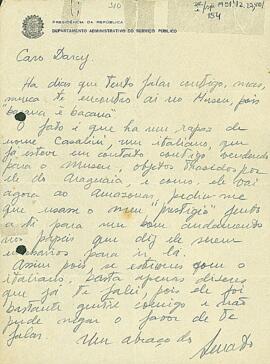 310
PRESIDÊNCIA DA REPÚBLICA
DEPARTAMENTO ADMINISTRATIVO DO SERVIÇO PÚBLICO
Caro Darcy,
Ha dias que tento falar contigo, mas,
nunca te encontro ai no Museu, pois
"bacana é bacana"
O fato é que ha um rapaz de
nome Casalini, um italiano, que
já esteve em contato contigo vendendo
para o museu, objetos trazidos por
ele do Araguaia e como, ele vai
agora ao Amazonas, pediu-me
que usasse o meu "prestigio" junto
a ti para um bom andamento
nos papeis que diz ele serem
necessarios para ir lá.
Assim pois se estiveres com o
italiano, basta apenas dizeres
que já te falei pois ele foi
bastante gentil comigo e não
pude negar o favor de te
falar.
Um abraço do